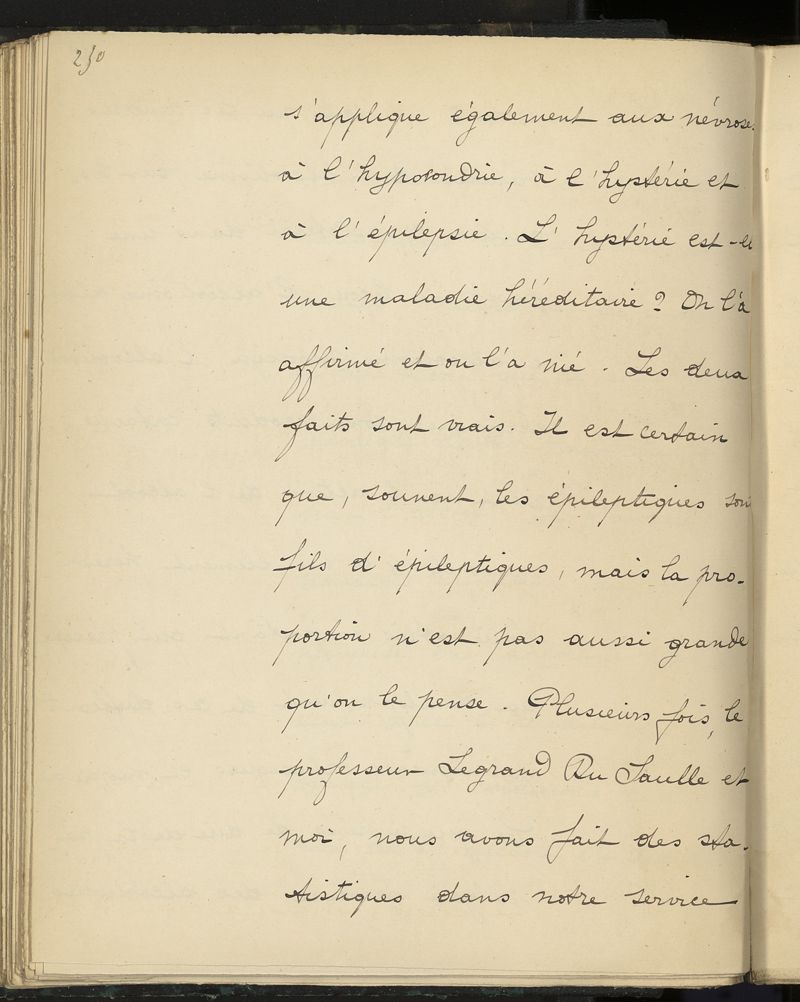 230
s'applique également aux névroses
à l'hypocondrie, à l'hystérie et
à l'épilepsie. L'hystérie est-el
une maladie héréditaire? On l'a
affirmé et on l'a nié. Les deux
faits sont vrais. Il est certain
que, souvent, les épileptiques sont
fils d'épileptiques, mais la pro-
portion n'est pas aussi grande
qu'on le pense. Plusieurs fois, le
professeur Legrand Du Saulle et
moi, nous avons fait des sta-
tistiques dans notre service